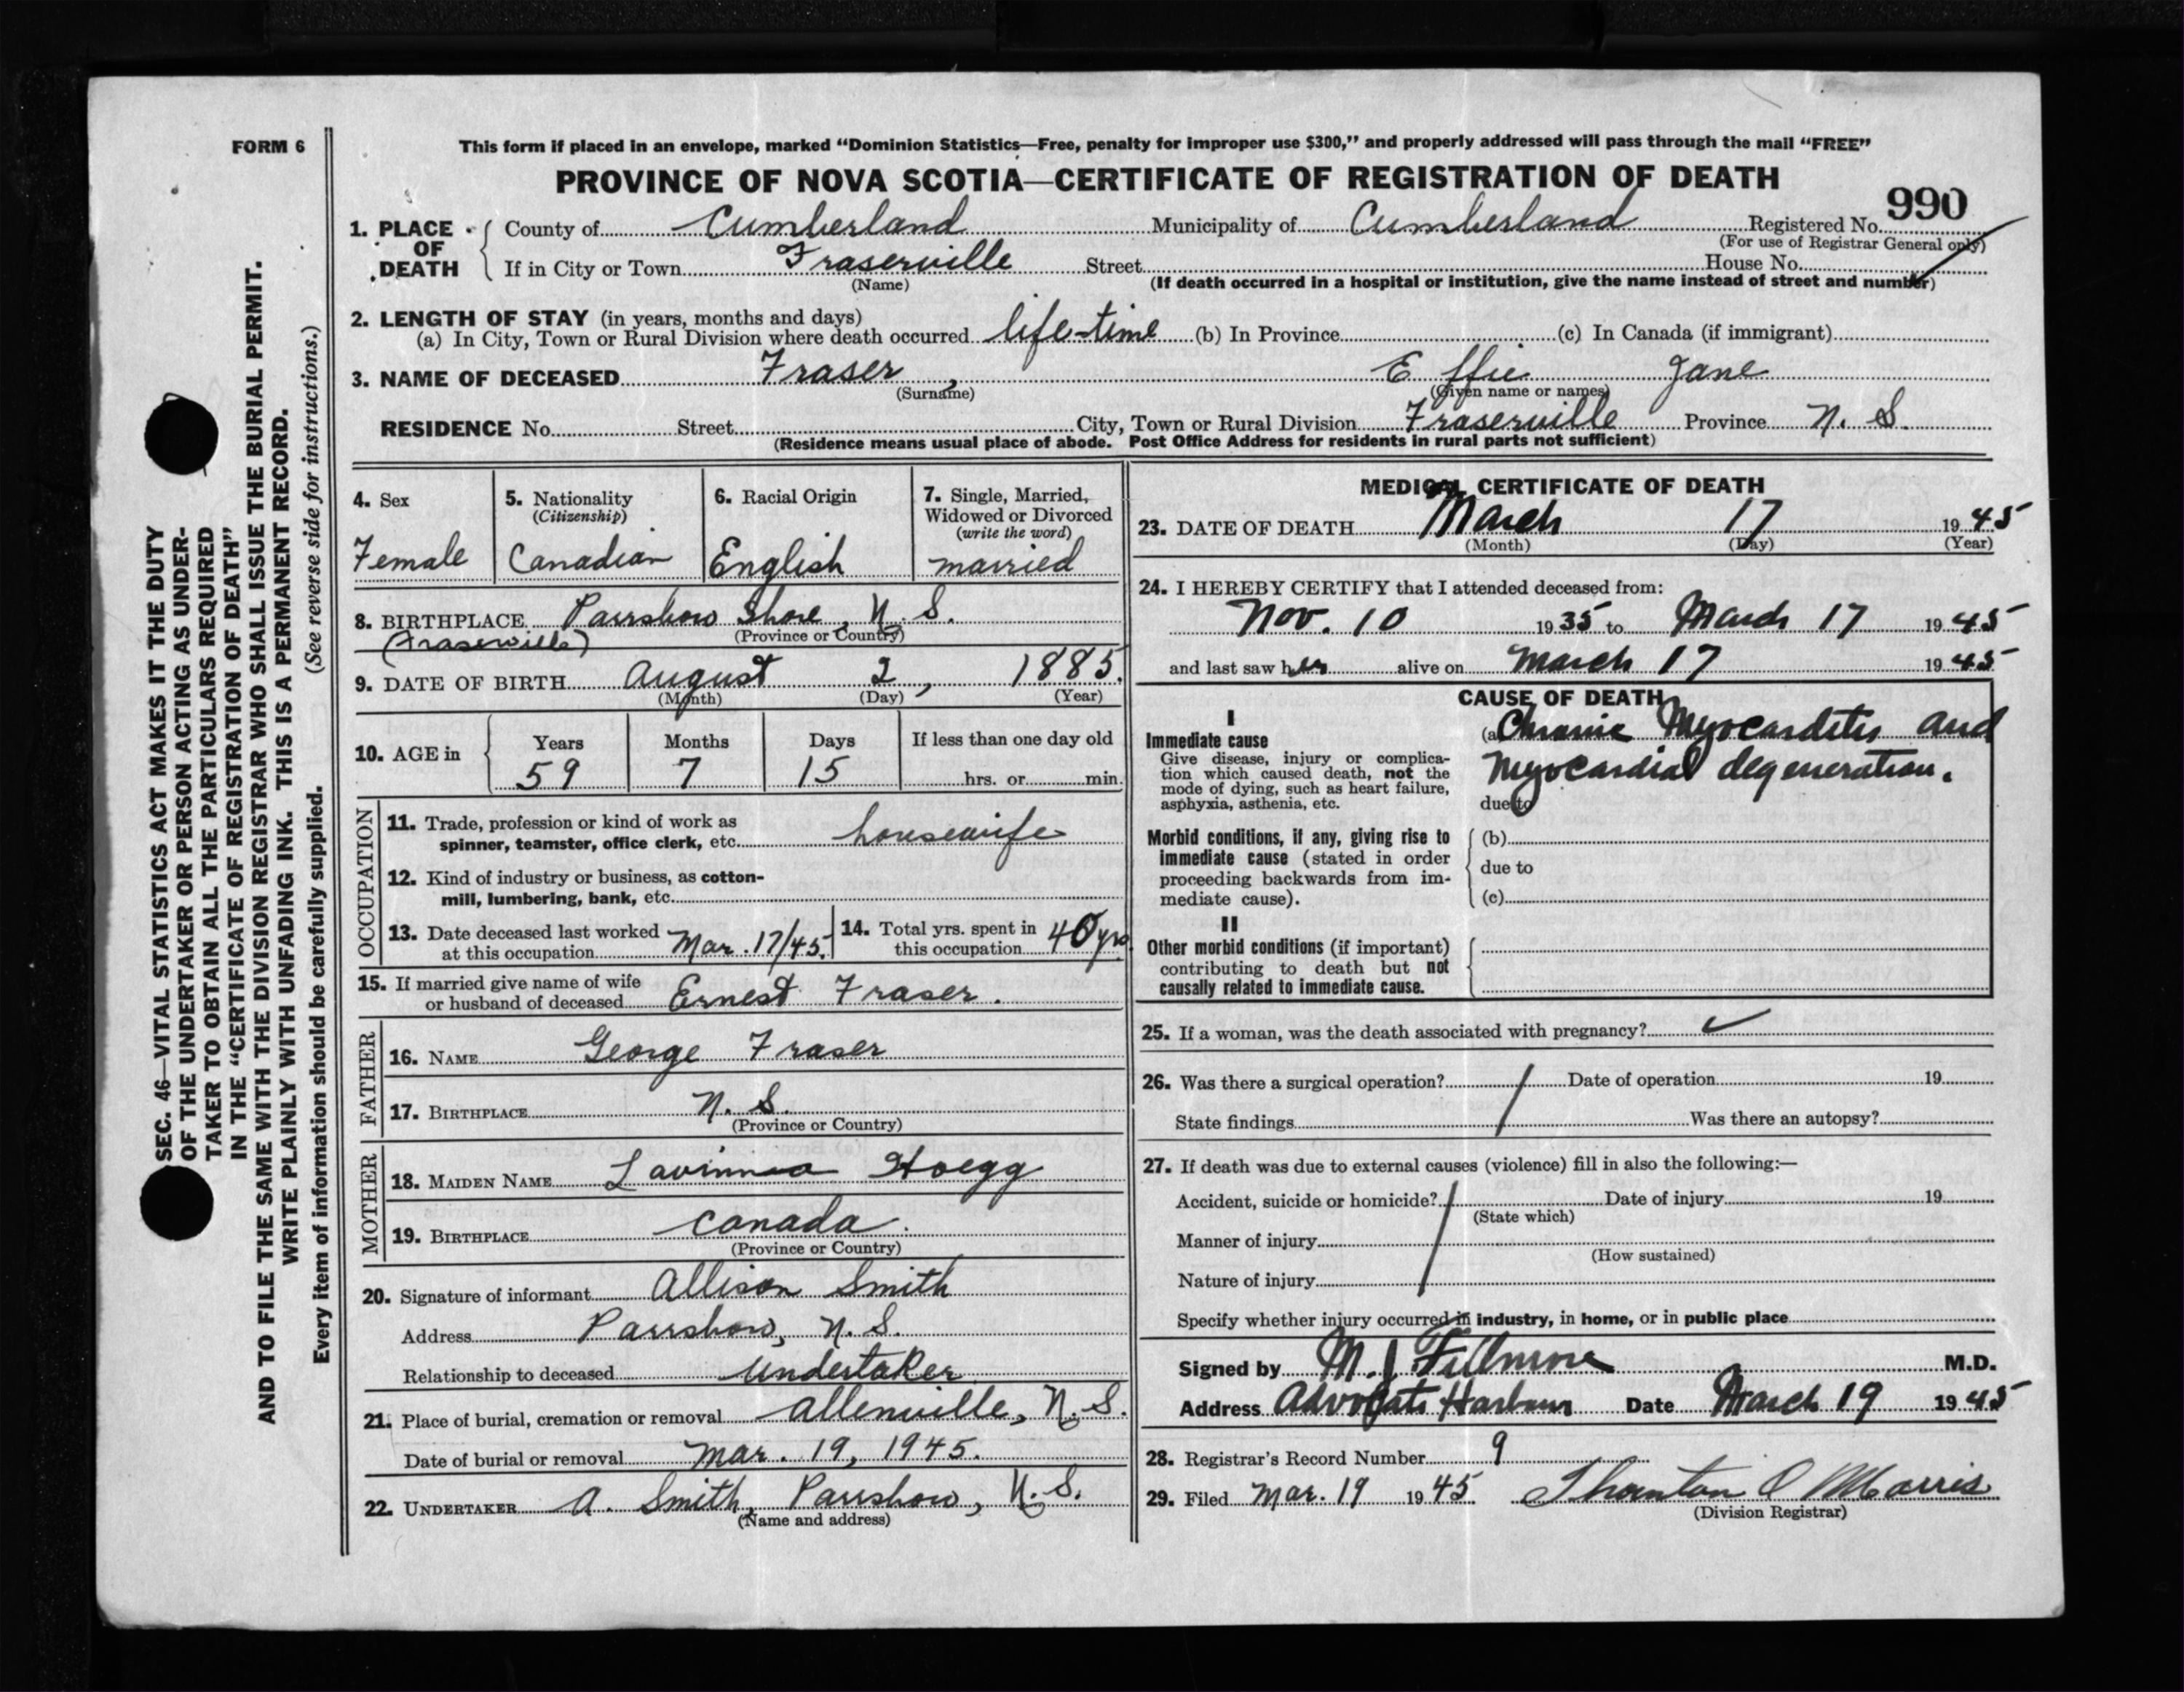 FORM 6
This form if placed in an envelope, marked “Dominion Statistics—Free, penalty for improper use $300,” and properly addressed will pass through the mail “FREE”
PROVINCE OF NOVA SCOTIA—CERTIFICATE OF REGISTRATION OF DEATH
990
1. PLACE OF DEATH County of Cumberland Municipality of Cumberland Registered No.
(For use of Registrar General only)
If in City or Town Fraserville Street House No.
(Name) (If death occurred in a hospital or institution, give the name instead of street and number)
2. LENGTH OF STAY (in years, months and days)
(a) In City, Town or Rural Division where death occurred life-time (b) In Province (c) In Canada (if immigrant)
3. NAME OF DECEASED Fraser, Effie Jane
(Surname) (Given name or names)
RESIDENCE No. Street City, Town or Rural Division Fraserville Province N. S.
(Residence means usual place of abode. Post Office Address for residents in rural parts not sufficient)
4. Sex
Female
5. Nationality
(Citizenship)
Canadian
6. Racial Origin
English
7. Single, Married,
Widowed or Divorced
(write the word)
married
8. BIRTHPLACE Parrsboro Shore, N. S.
(Fraserville) (Province or Country)
9. DATE OF BIRTH August 2, 1885.
(Month) (Day) (Year)
10. AGE in Years Months Days If less than one day old
59 7 15 hrs. or min.
OCCUPATION
11. Trade, profession or kind of work as
spinner, teamster, office clerk, etc. housewife
12. Kind of industry or business, as cotton-
mill, lumbering, bank, etc.
13. Date deceased last worked
at this occupation Mar. 17/45.
14. Total yrs. spent in
this occupation 40 yrs.
15. If married give name of wife
or husband of deceased Ernest Fraser.
FATHER
16. NAME George Fraser
17. BIRTHPLACE N. S.
(Province or Country)
MOTHER
18. MAIDEN NAME Lavinna Hoegg
19. BIRTHPLACE Canada.
(Province or Country)
20. Signature of informant Allison Smith
Address Parrsboro, N. S.
Relationship to deceased Undertaker
21. Place of burial, cremation or removal Allenville, N. S.
Date of burial or removal Mar. 19, 1945.
22. UNDERTAKER A. Smith, Parrsboro, N. S.
(Name and address)
MEDICAL CERTIFICATE OF DEATH
23. DATE OF DEATH March 17 1945
(Month) (Day) (Year)
24. I HEREBY CERTIFY that I attended deceased from:
Nov. 10 1935 to March 17 1945
and last saw her alive on March 17 1945
CAUSE OF DEATH
I
Immediate cause
Give disease, injury or complica-
tion which caused death, not the
mode of dying, such as heart failure,
asphyxia, asthenia, etc.
(a) Chronic Myocarditis and
Myocardial degeneration.
due to
Morbid conditions, if any, giving rise to
immediate cause (stated in order
proceeding backwards from im-
mediate cause).
(b)
due to
(c)
II
Other morbid conditions (if important)
contributing to death but not
causally related to immediate cause.
25. If a woman, was the death associated with pregnancy? ✓
26. Was there a surgical operation? Date of operation 19
State findings Was there an autopsy?
27. If death was due to external causes (violence) fill in also the following:—
Accident, suicide or homicide? Date of injury 19
(State which)
Manner of injury
(How sustained)
Nature of injury
Specify whether injury occurred in industry, in home, or in public place
Signed by M. J. Fillmore M.D.
Address Advocate Harbour Date March 19 1945
28. Registrar's Record Number 9
29. Filed Mar. 19 1945 Morris
(Division Registrar)
SEC. 46—VITAL STATISTICS ACT MAKES IT THE DUTY
OF THE UNDERTAKER OR PERSON ACTING AS UNDER-
TAKER TO OBTAIN ALL THE PARTICULARS REQUIRED
IN THE “CERTIFICATE OF REGISTRATION OF DEATH”
AND TO FILE THE SAME WITH THE DIVISION REGISTRAR WHO SHALL ISSUE THE BURIAL PERMIT.
WRITE PLAINLY WITH UNFADING INK. THIS IS A PERMANENT RECORD.
Every item of information should be carefully supplied. (See reverse side for instructions.)